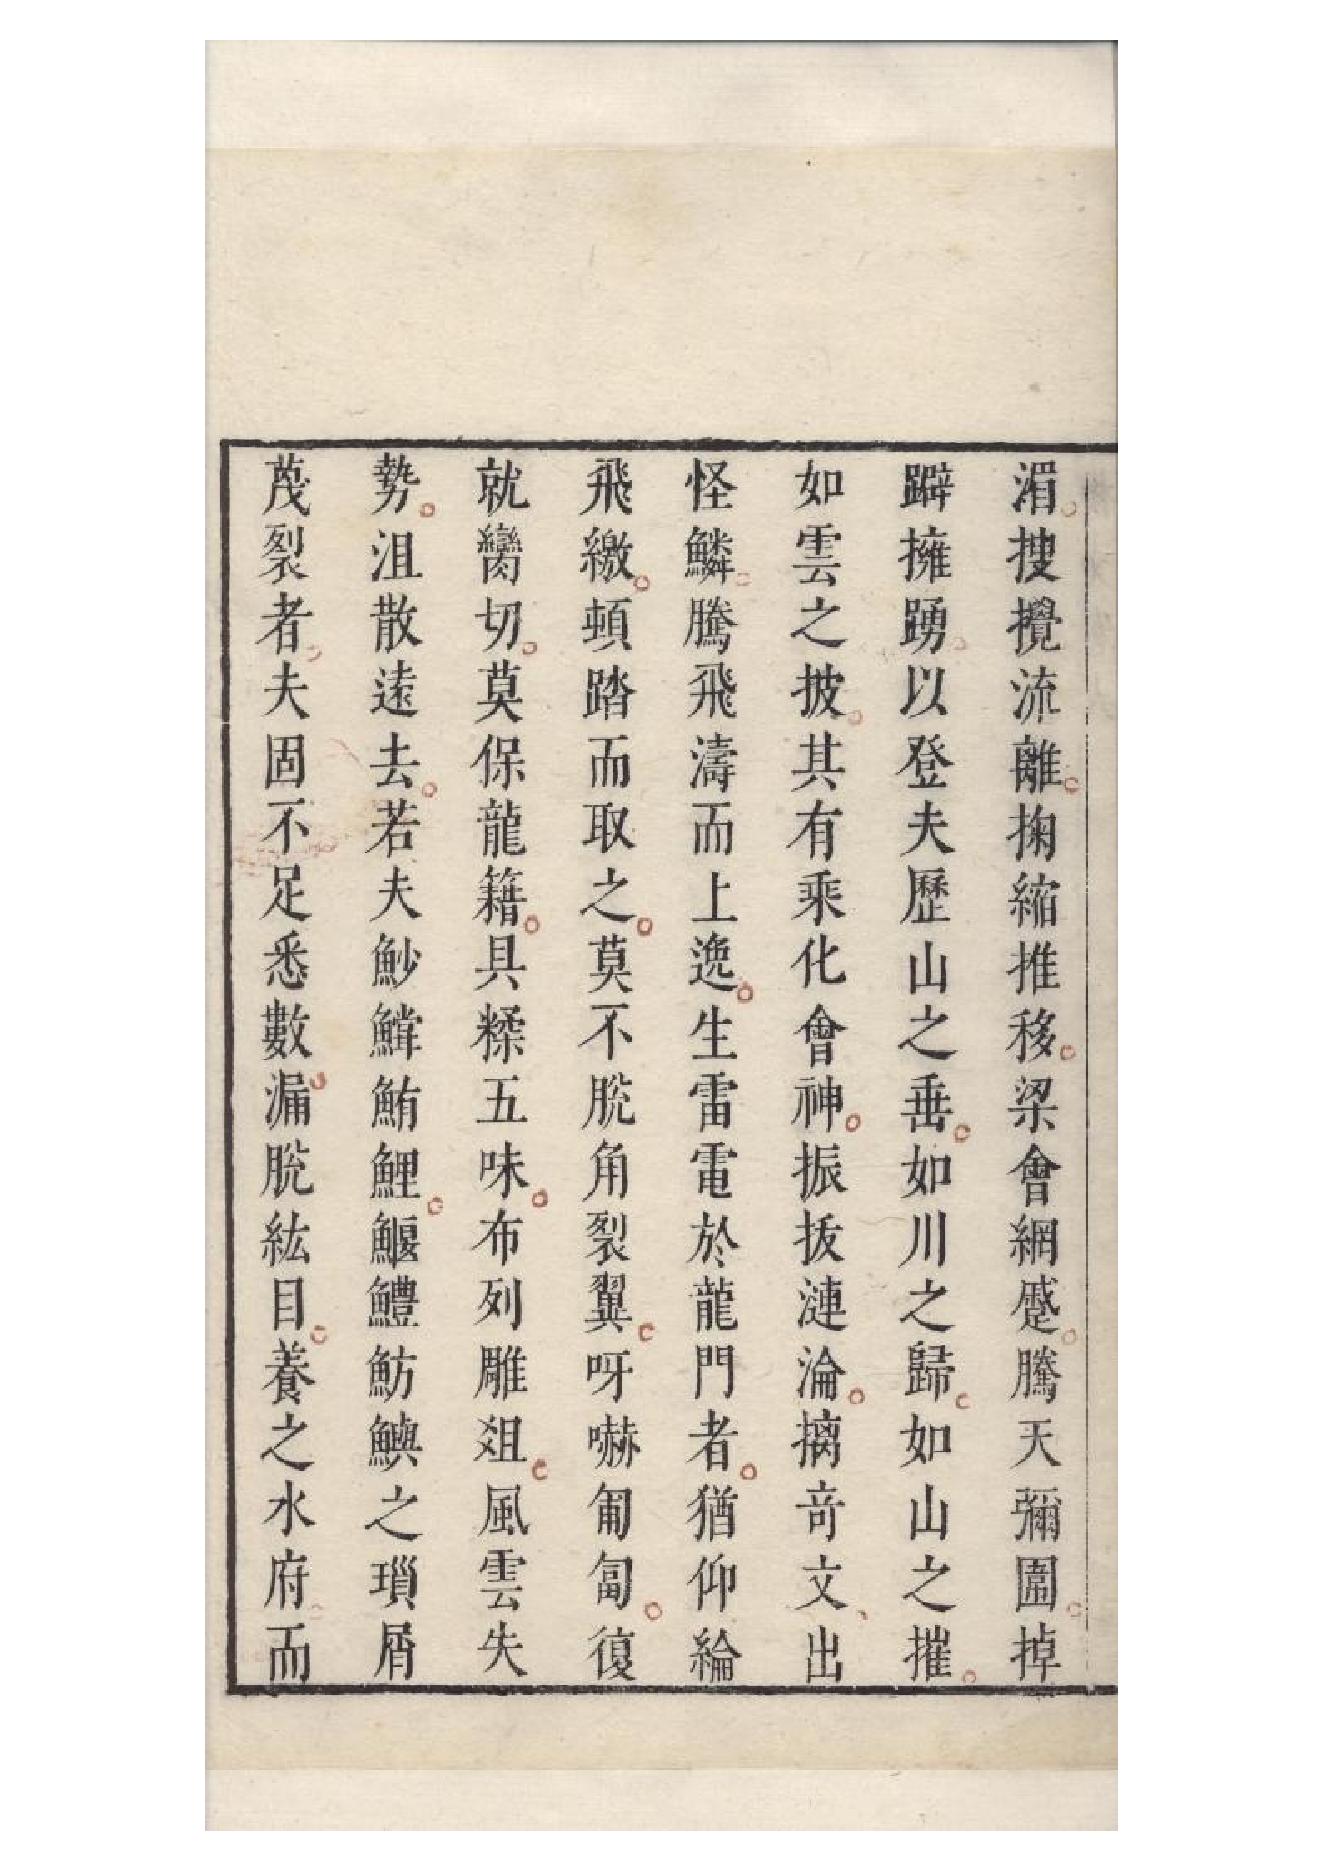 湄搜攪流離掬縮推移梁會網蹙騰天彌圍掉
躃擁踴以登夫歷山之垂如川之歸如山之摧
如雲之披其有乘化會神振拔漣淪摛奇文出
怪鱗騰飛濤而上逸生雷電於龍門者猶仰綸
飛繳頓踏而取之莫不脫角裂翼呀嚇匍匐復
就臠切莫保龍籍具糅五味布列雕俎風雲失
勢沮散遠去若夫魦鱨鮪鯉鰋鱧魴鱮之瑣屑
蔑裂者夫固不足悉數漏脫紘目養之水府而